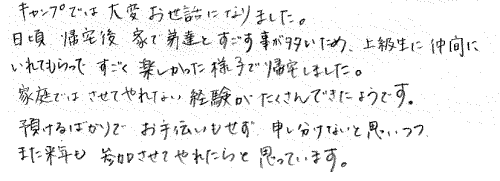 キャンプでは大変お世話になりました。
日頃 帰宅後 家で弟達とすごす事が多いため、上級生に仲間に
いれてもらって すごく楽しかった様子で帰宅しました。
家庭では させてやれない経験が たくさんできたようです。
預けるばかりで お手伝いもせず 申し分けないと思いつつ
また来年も 参加させてやれたらと 思っています。